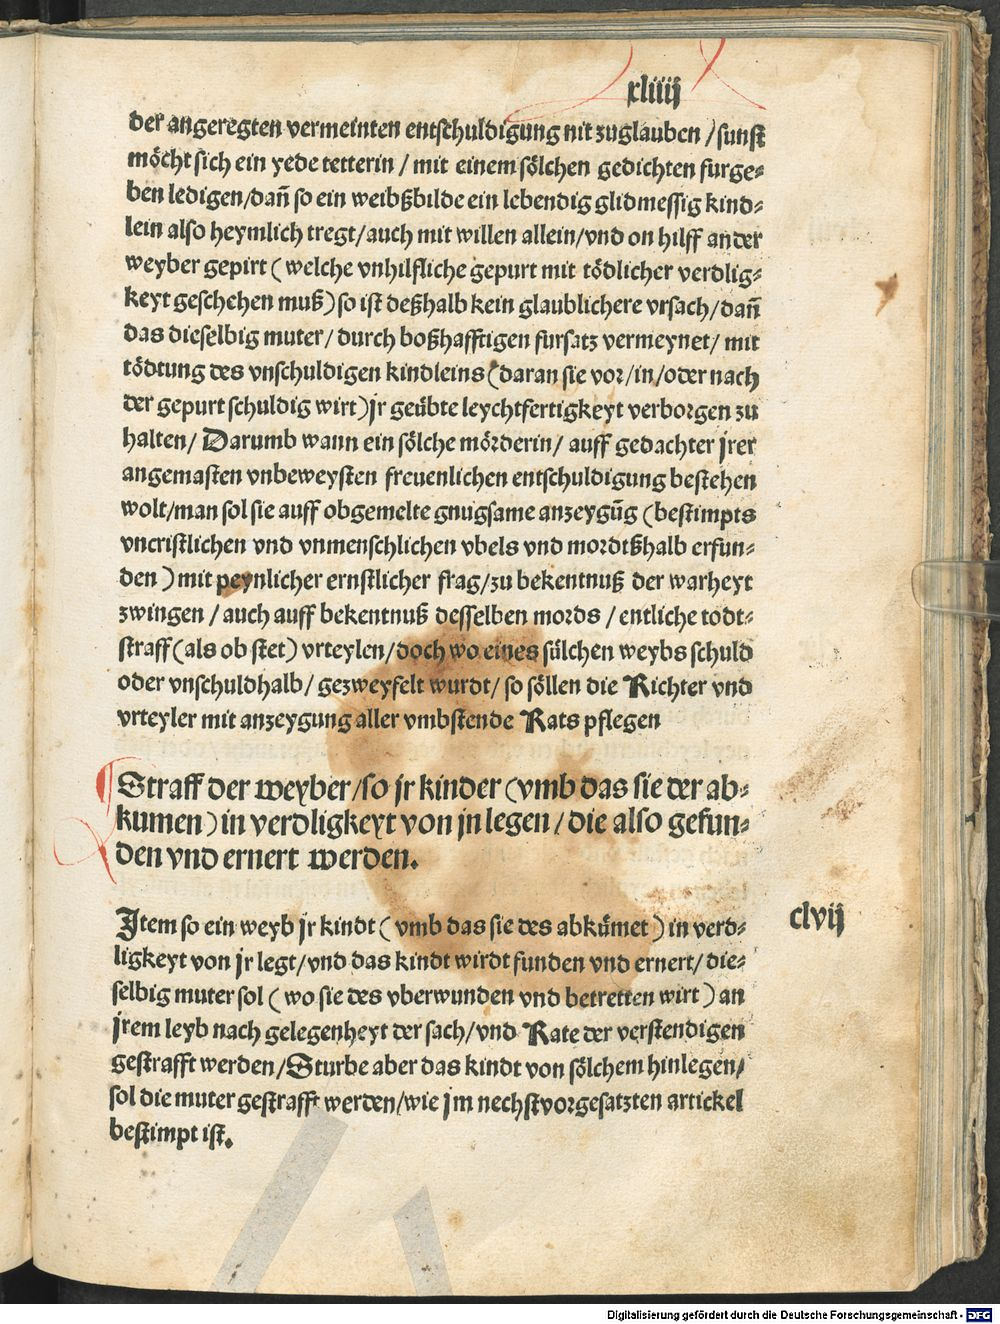 xliiij
der angeregten vermeinten entschuldigung nit zuglauben / sunst
möcht sich ein yede tetterin / mit einem sölchen gedichten furge⸗
ben ledigen/dañ so ein weibßbilde ein lebendig glidmessig kind⸗
lein also heymlich tregt/auch mit willen allein/vnd on hilff ander
weyber gepirt ( welche vnhilfliche gepurt mit tödlicher verdlig⸗
keyt geschehen muß) so ist deßhalb kein glaublichere vrsach/dañ
das dieselbig muter/ durch boßhafftigen fursatz vermeynet/ mit
tödtung des vnschuldigen kindleins (daran sie vor/in/oder nach
der gepurt schuldig wirt) jr geübte leychtfertigkeyt verborgen zu
halten/ Darumb wann ein sölche mörderin/ auff gedachter jrer
angemasten vnbeweysten freuenlichen entschuldigung bestehen
wolt/man sol sie auff obgemelte gnugsame anzeygūg (bestimpts
vncristlichen vnd vnmenschlichen vbels vnd mordtßhalb erfun⸗
den ) mit peynlicher ernstlicher frag/zu bekentnuß der warheyt
zwingen / auch auff bekentnuß desselben mords / entliche todt⸗
straff (als ob stet) vrteylen/doch wo eines sülchen weybs schuld
oder vnschuldhalb/ gezweyfelt wurdt/ so söllen die Richter vnd
vrteyler mit anzeygung aller vmbstende Rats pflegen
Straff der weyber/so jr kinder (vmb das sie der ab⸗
kumen) in verdligkeyt von jn legen / die also gefun⸗
den vnd ernert werden.
Item so ein weyb jr kindt ( vmb das sie des abkümet ) in verd⸗
clvij
ligkeyt von jr legt/vnd das kindt wirdt funden vnd ernert/ die⸗
selbig muter sol ( wo sie des vberwunden vnd betretten wirt ) an
jrem leyb nach gelegenheyt der sach/vnd Rate der verstendigen
gestrafft werden/Sturbe aber das kindt von sölchem hinlegen/
sol die muter gestrafft werden/wie jm nechstvorgesatzten artickel
bestimpt ist.
Digitalisierung gefördert durch die Deutsche Forschungsgemeinschaft - DFG